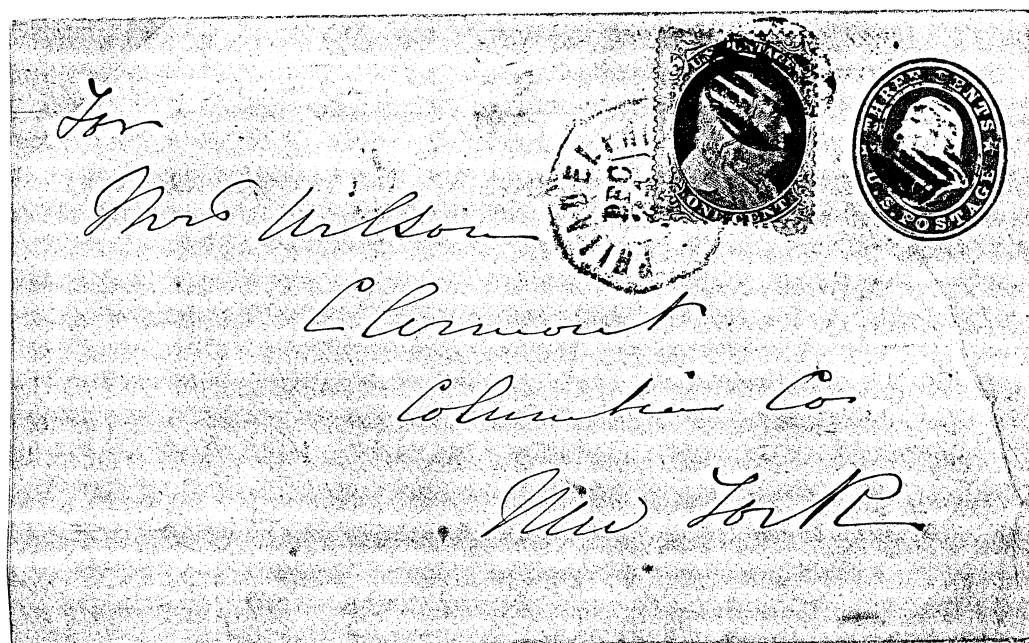 For
Mrs Wilson
Clermont
Columbia Co
New York
PHILADELPHI
DEC
U.S. POSTAGE
ONE CENT
THREE CENTS
U.S. POSTAGE